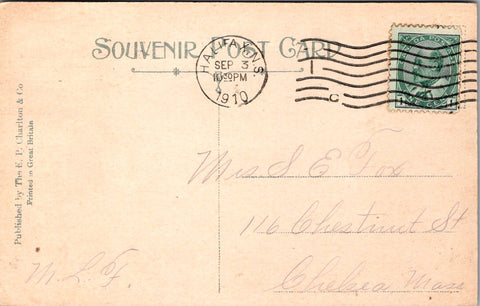 SOUVENIR POST CARD
HALIFAX, N.S.
SEP 3
10:30PM
1910
C
Published by The E. P. Charlton & Co
Printed in Great Britain
Mrs S E Fox
116 Chestnut St
Chelsea Mass
M. L. F.